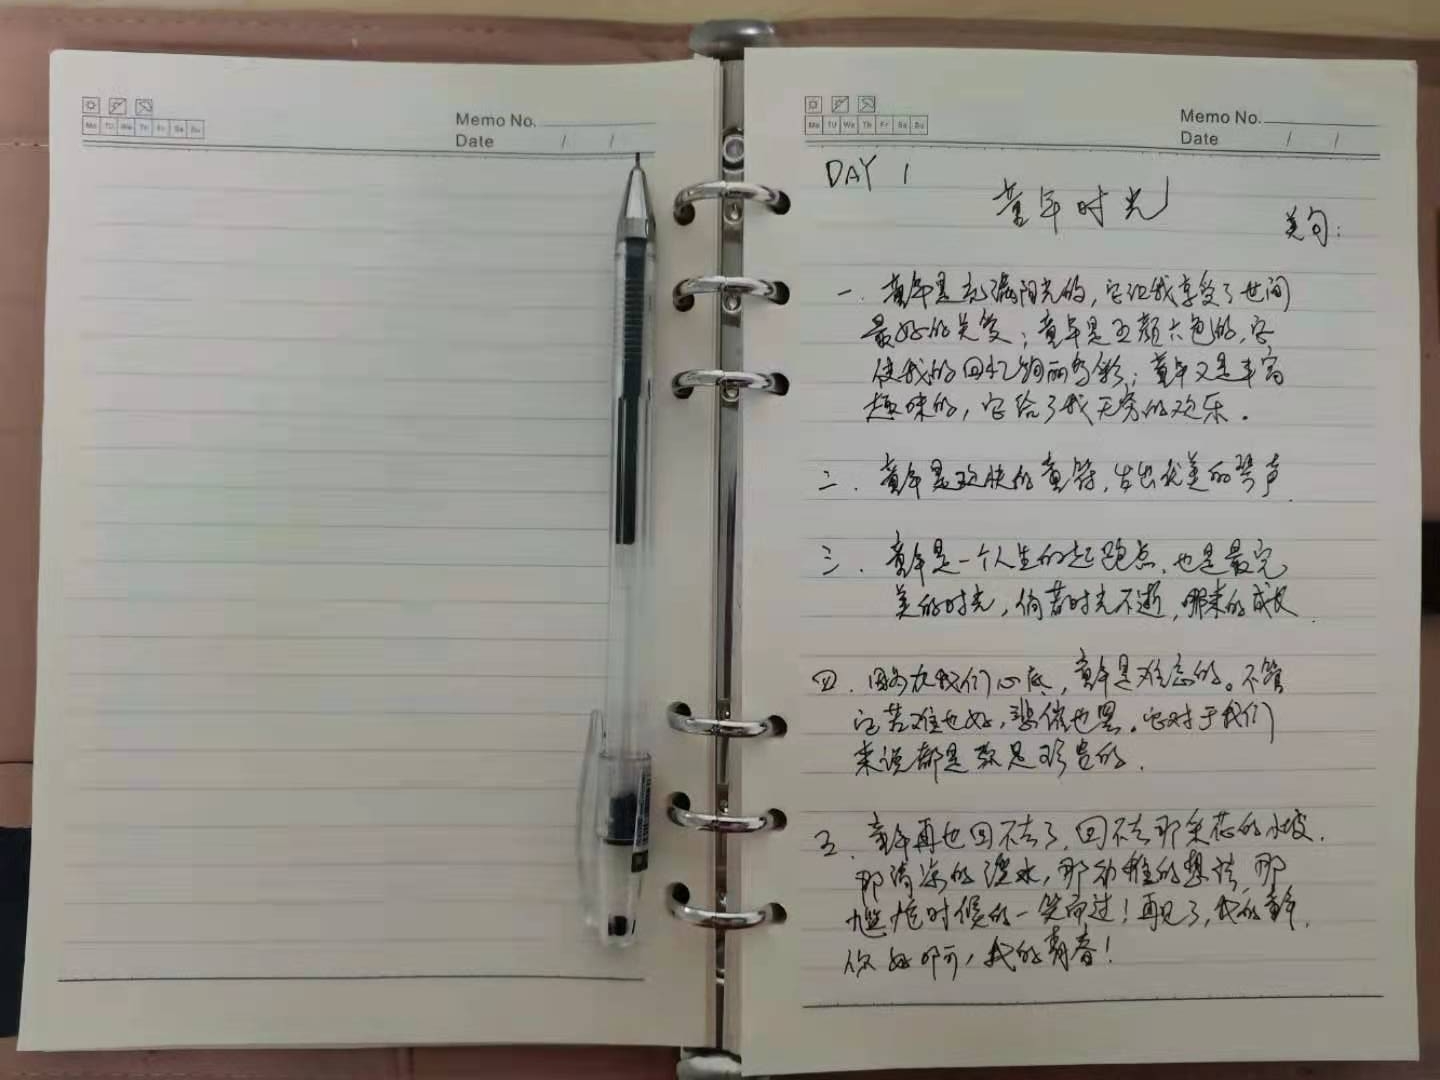 Mo TU We Th Fr Sa Su
Memo No.
Date / /
Mo TU We Th Fr Sa Su
Memo No.
Date / /
DAY 1
童年时光
美句:
一. 童年是充满阳光的,它让我享受了世间
最好的关爱;童年是五颜六色的,它
使我的回忆绚丽多彩;童年又是丰富
趣味的,它给了我无穷的欢乐.
二. 童年是欢快的音符,发出优美的琴声.
三. 童年是一个人生的起跑点,也是最完
美的时光,倘若时光不逝,哪来的成长.
四. 因为在我们心底,童年是难忘的。不管
它苦难也好,悲催也罢。它对于我们
来说都是弥足珍贵的.
五. 童年再也回不去了,回不去那采花的小坡.
那清凉的溪水,那幼稚的想法,那
尴尬时候的一笑而过!再见了,我的童年,
你好啊,我的青春!